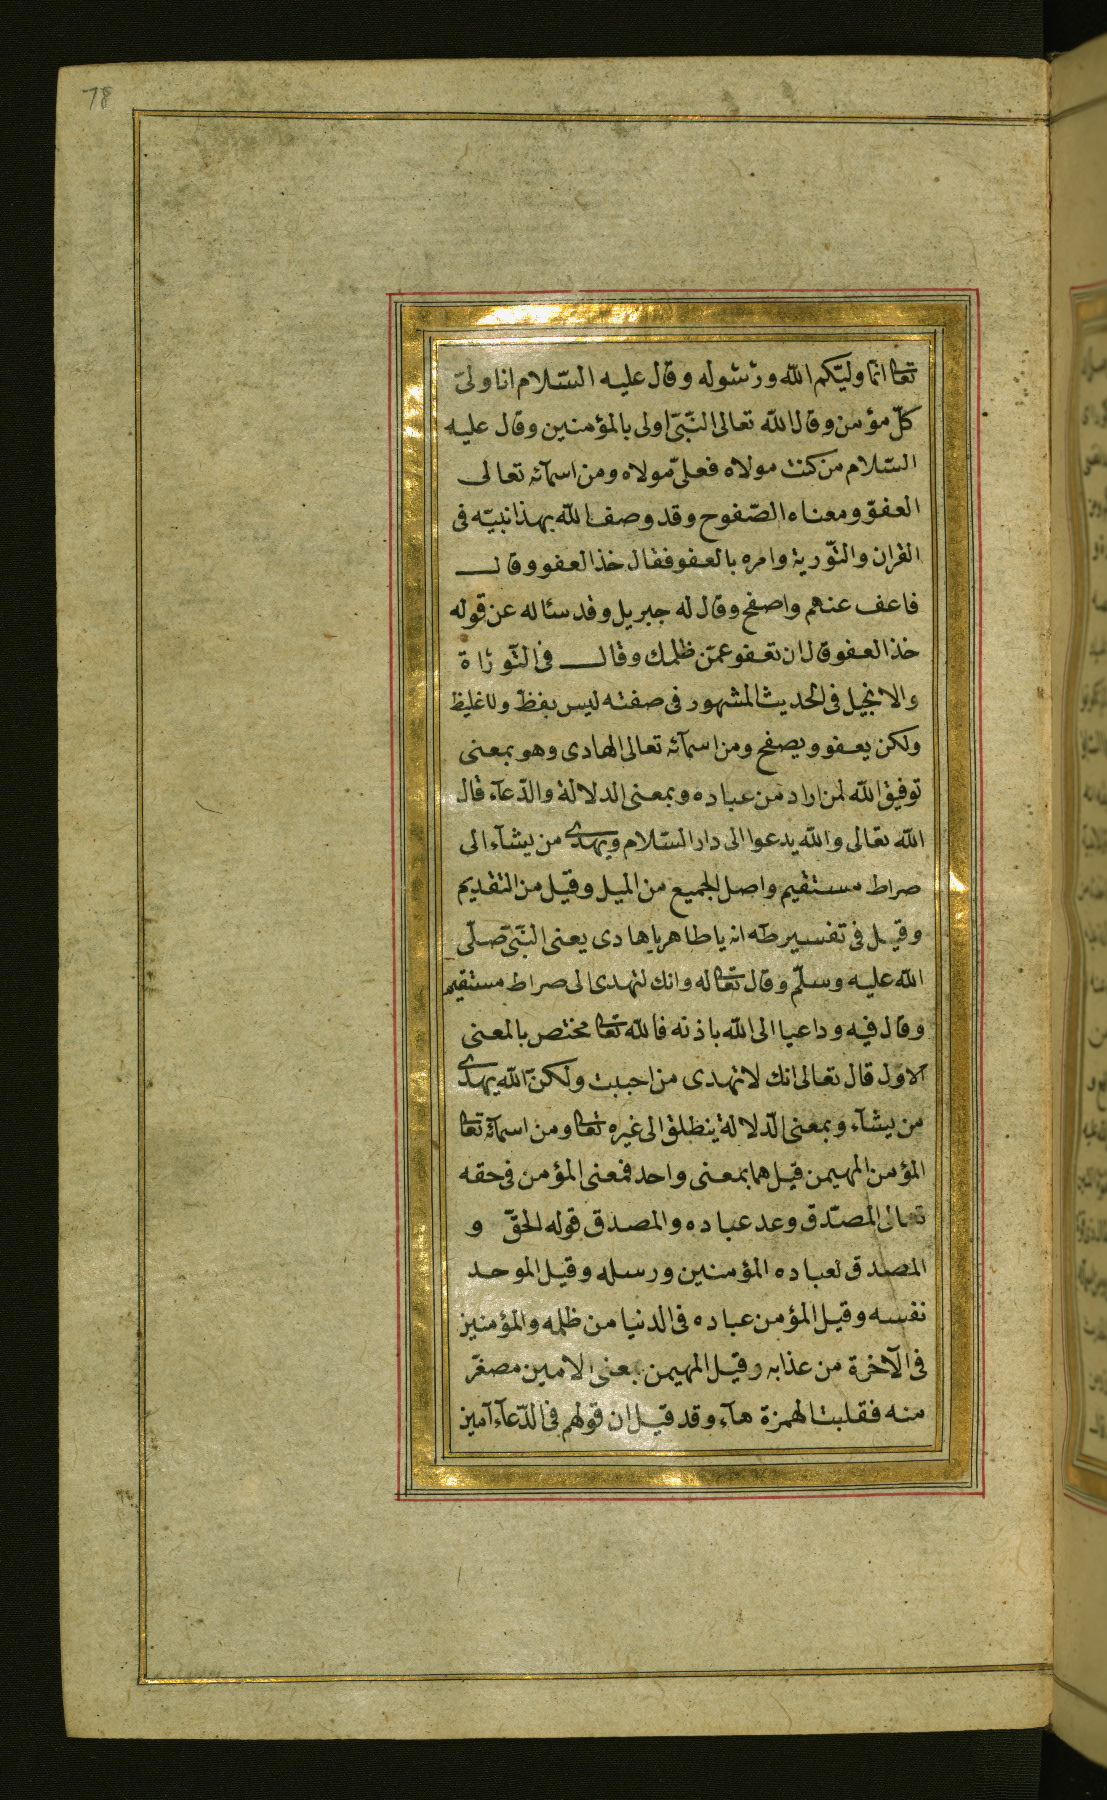 78
تعا انما وليّكم الله ورسوله وقال عليه السّلام انا ولىّ
كلّ مؤمن وقال الله تعالى النّبىّ اولى بالمؤمنين وقال عليه
السّلام من كنت مولاه فعلىّ مولاه ومن اسمآئه تعالى
العفوّ ومعناه الصّفوح وقد وصف الله بهذا نبيّه فى
القران والتّورية وامره بالعفو فقال خذ العفو وقال
فاعف عنهم واصفح وقال له جبريل وقد سئاله عن قوله
خذ العفو قال ان تعفو عمّن ظلمك وقال فى التّوراة
والانجيل فى الحديث المشهور فى صفته ليس بفظّ ولا غليظ
ولكن يعفو ويصفح ومن اسمآئه تعالى الهادى وهو بمعنى
توفيق الله لمن اراد من عباده وبمعنى الدلالة والدّعآء قال
الله تعالى والله يدعوا الى دار السّلام ويهدى من يشآء الى
صراط مستقيم واصل الجميع من الميل وقيل من التقديم
وقيل فى تفسير طه انه يا طاهر يا هادى يعنى النّبىّ صلّى
الله عليه وسلّم وقال تعا له وانك لتهدى الى صراط مستقيم
وقال فيه وداعيا الى الله باذنه فالله تعا مختص بالمعنى
الاول قال تعالى انك لا تهدى من احببت ولكنّ الله يهدى
من يشآء وبمعنى الدّلالة ينطلق الى غيره تعا ومن اسمآئه تعا
المؤمن المهيمن قيل هما بمعنى واحد فمعنى المؤمن فى حقه
تعالى المصدّق وعد عباده والمصدق قوله الحقّ و
المصدق لعباده المؤمنين ورسله وقيل الموحد
نفسه وقيل المؤمن عباده فى الدنيا من ظلمه والمؤمنين
فى الآخرة من عذابه وقيل المهيمن بمعنى الامين مصغّر
منه فقلبت الهمزة هآء وقد قيل ان قولهم فى الدّعآء آمين